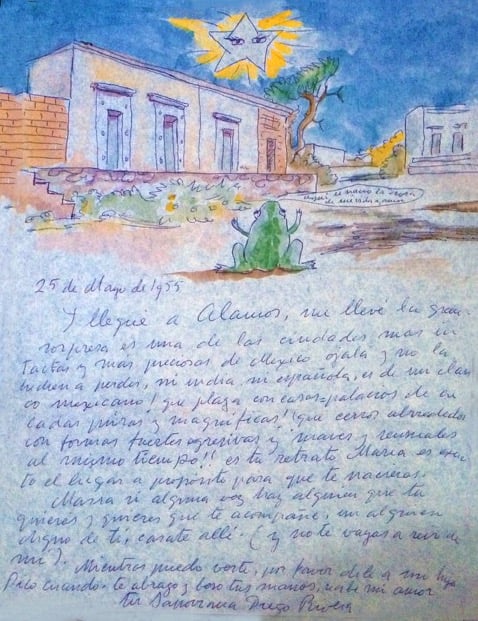 aquí nació la
de
25 de Mayo de 1955
Y llegué a Alamos, me llevé la gran
sorpresa es una de las ciudades mas in
tactas y más preciosas de Mexico ojala y no la
echen a perder, ni india ni española, es de un clasi
co mexicano! que plaza con casas-palacios de ar
cadas puras y magníficas! que cerros alrededor
con formas fuertes agresivas y suaves y sensuales
al mismo tiempo!! es tu retrato Maria es exac
to el lugar a propósito para que tu nacieras.
Maria si alguna vez hay alguien que tu
quieres y quieres que te acompañe, un alguien
digno de ti, casate allí. (y no te vayas a reir de
mi). Mientras puedo verte, por favor dile a mi hija
Pico cuando. te abrazo y beso tus manos, sabe mi amor
tu Diego Rivera